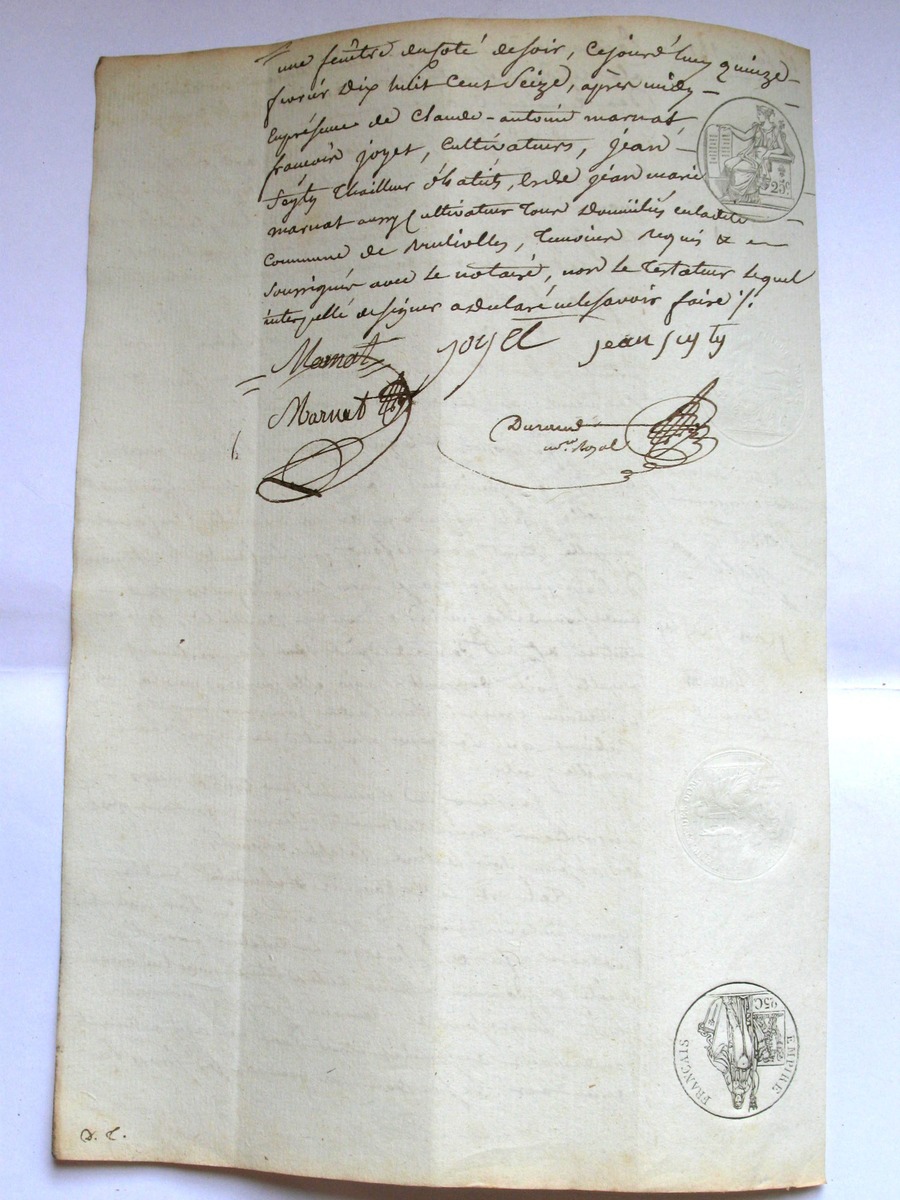 une fenêtre du coté de soir, cejourd'huy quinze
fevrier Dix huit Cent Seize, après midy
En présence de Claude-antoine marnat
francois joyet, Cultivateurs, jean
Seyty Thailleur d'habits, et de jean marie
marnat aussy Cultivateur Tous Domiciliés en ladite
Commune de Brulioles, Temoins Requis &
Soussignés avec le notaire, non le Testateur lequel
interpellé de signer a déclaré ne le savoir faire ·/.
Marnat joyet jean seyty
Marnat
Durand
no.re Royal
25C
EMPIRE FRANÇAIS
D. C.